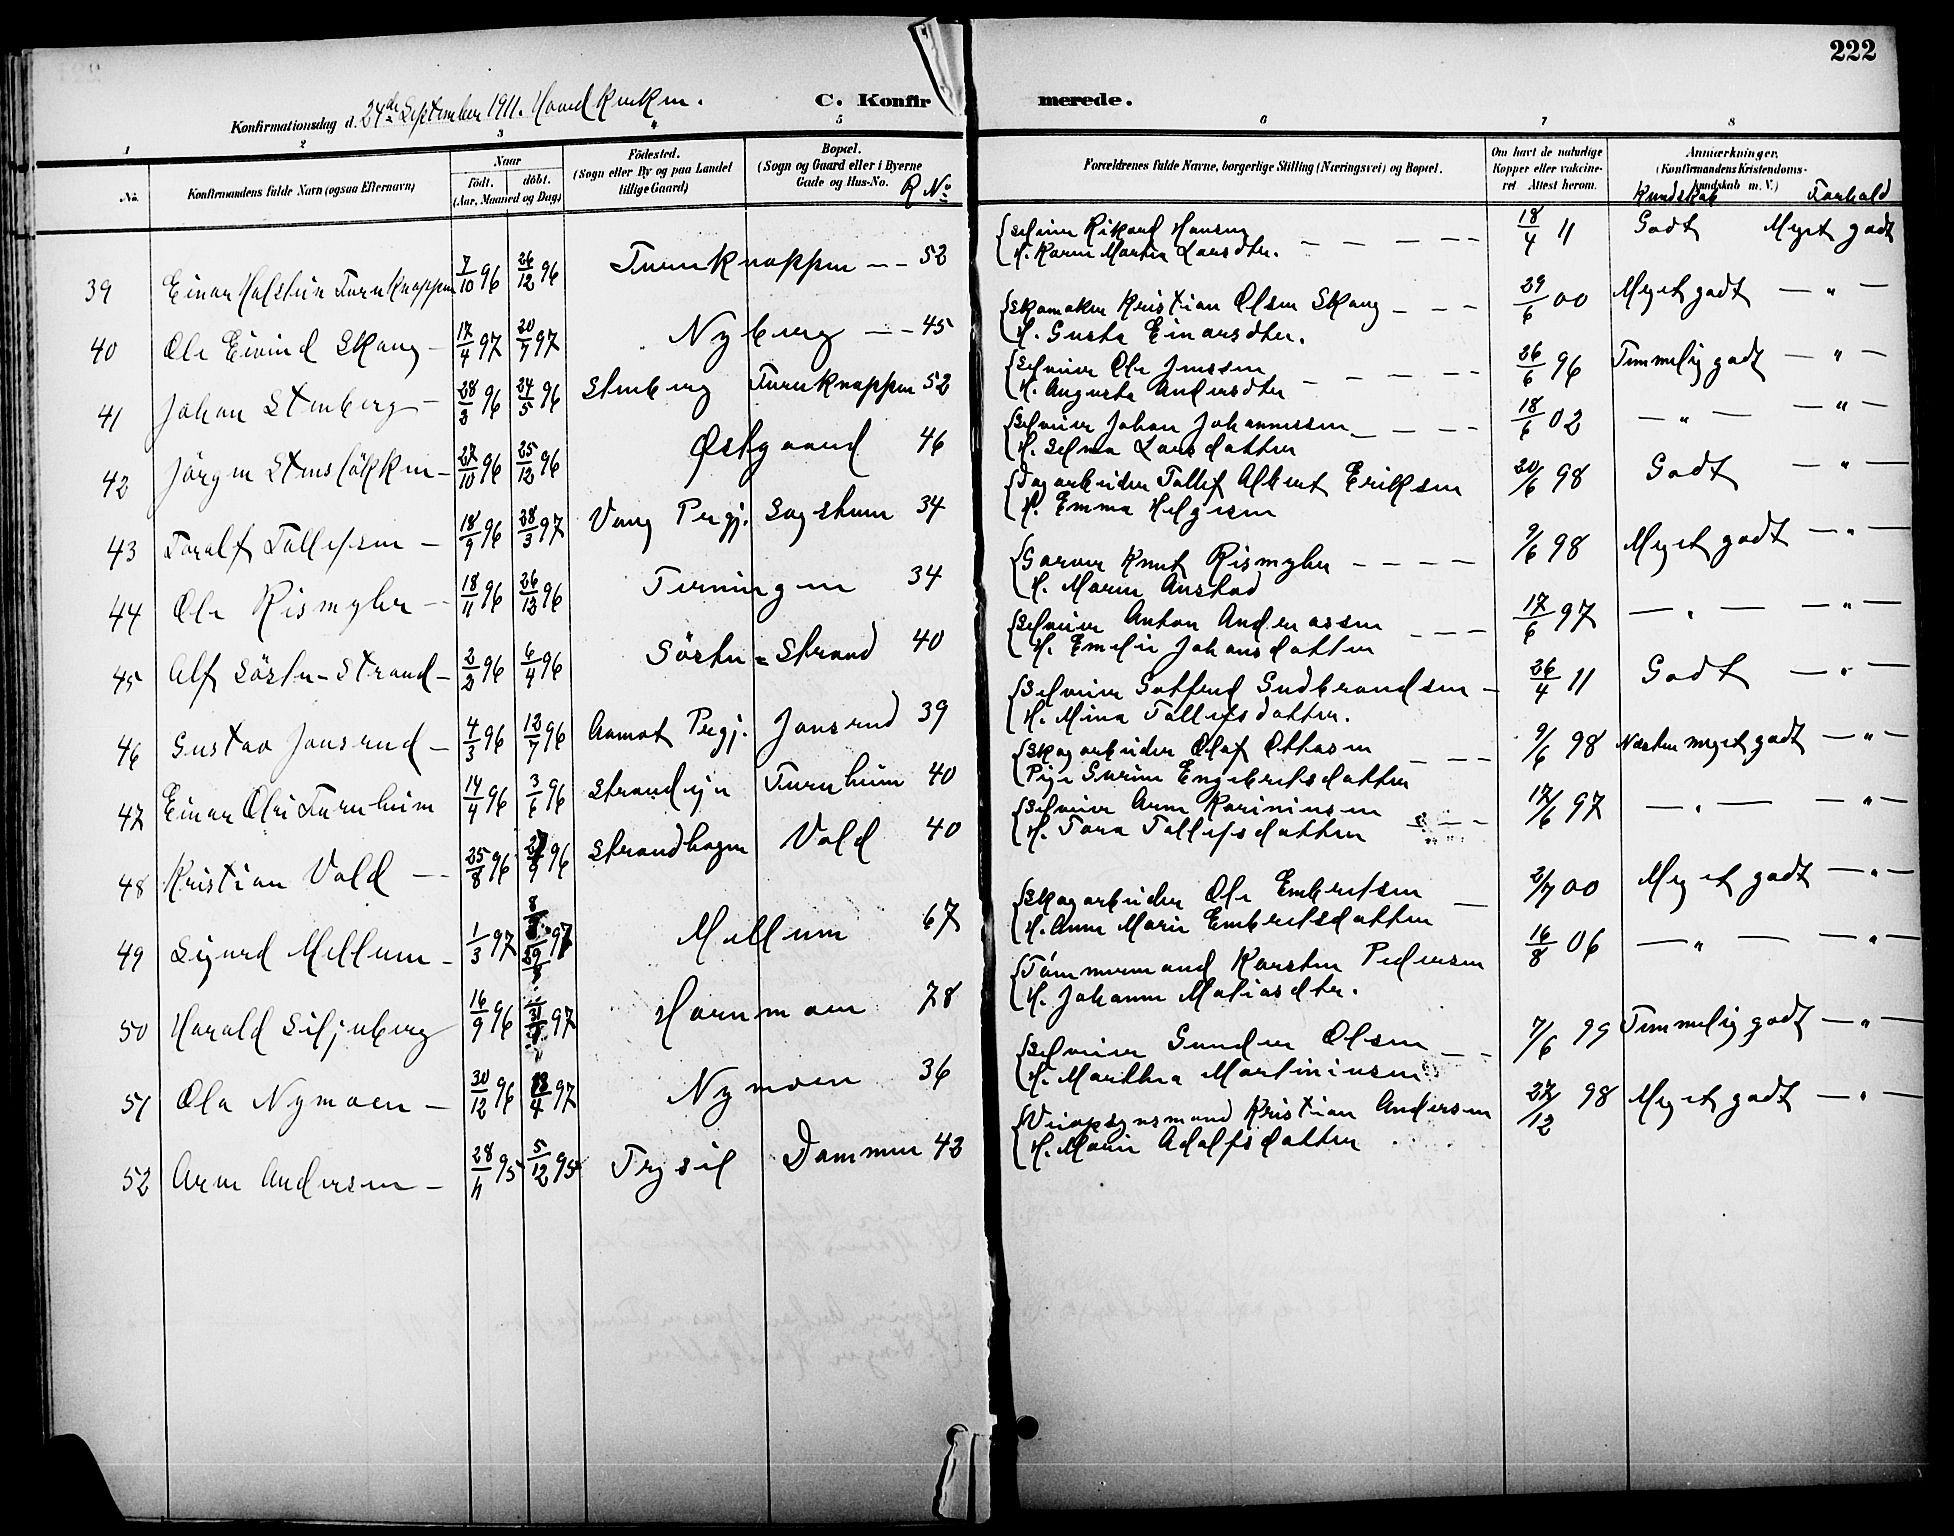 222
Konfirmationsdag d. 24de September 1911.
C. Konfirmerede.
1 2 3 4 5 6 7 8
No.
Konfirmandens fulde Navn (ogsaa Efternavn)
Naar
Født. døbt.
(Aar, Maaned og Dag)
Fødested.
(Sogn eller By og paa Landet
tillige Gaard)
Bopæl.
(Sogn og Gaard eller i Byerne
Gade og Hus-No. R No
Forældrenes fulde Navne, borgerlige Stilling (Næringsvei) og Bopæl.
Om havt de naturlige
Kopper eller vakcine-
ret Attest herom.
Anmærkninger.
(Konfirmandens Kristendoms-
kundskab m. V.)
Kundskab Forhold
39 Einar Halstein Furuknappen 7/10 96 26/12 96 Furuknappen — — 52 Selveier Rikard Hansen 18/4 11 Godt Meget godt
H. Karen Martea Larsdtr.
40 Ole Eivind Skang 17/4 97 20/7 97 Nyberg — — 45 Skomaker Kristian Olsen Skang 29/6 00 Meget godt — " —
H. Gusta Einarsdtr.
41 Johan Stenberg 28/3 96 24/5 96 Stenberg Furuknappen 52 Selveier Ole Jenssen 26/6 96 Temmelig godt — " —
H. Augusta Andersdtr
42 Jörgen Stensløkken 27/10 96 25/12 96 Østgaard 46 Selveier Johan Johannessen 18/6 02 — " — — " —
H. Selma Larsdatter
43 Toralf Tollefsen 18/9 96 28/3 97 Vang Prgj. Sagstuen 34 Dagarbeider Tollef Albert Eriksen 20/6 98 Godt — " —
H. Emma Helgesen
44 Ole Rismyhr 18/11 96 26/12 96 Terningen 34 Garver Knut Rismyhr 9/6 98 Meget godt — " —
H. Maren Anstad
45 Alf Söstu-Strand 2/2 96 6/4 96 Söstu = Strand 40 Selveier Anton Andreassen 17/6 97 — " — — " —
H. Emelie Johansdatter
46 Gustav Jonsrud 4/3 96 12/7 96 Aamot Prgj. Jonsrud 39 Selveier Gotfred Gudbrandsen 26/4 11 Godt — " —
H. Mina Tollefsdatter.
47 Einar Olri Furuheim 14/4 96 3/6 96 Strandeje Furuheim 40 Skogarbeider Olaf Ottosen 9/6 98 Næsten meget godt — " —
Pige Gurine Engebretsdatter
48 Kristian Vold 25/8 96 27/9 96 Strandhagen Vold 40 Selveier Arne Kariniusen 17/6 97 — " — — " —
H. Tora Tollefsdatter
49 Sigurd Mellum 1/3 97 Mellum 67 Skogarbeider Ole Embretsen 2/7 00 Meget godt — " —
H. Anne Marie Embretsdatter
50 Harald Siljuberg 16/9 96 97 Hornmoen 78 Tömmermand Karsten Pedersen 16/8 06 — " — — " —
H. Johanne Matiasdtr.
51 Ola Nymoen 30/12 96 97 Nymoen 36 Selveier Gunder Olsen 7/6 99 Temmelig godt — " —
H. Marthea Martiniusen
52 Arne Andersen 28/11 95 5/12 95 Trysil Dammen 42 Veiopsynsmand Kristian Andersen 27/12 98 Meget godt — " —
H. Marie Adolfsdatter